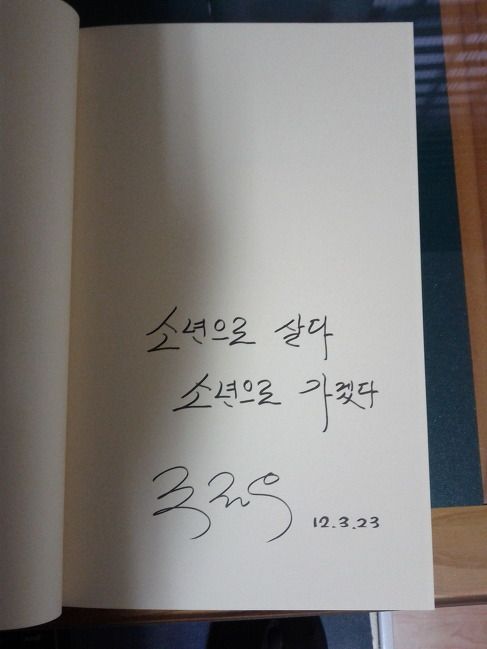 소년으로 살다
소년으로 가겠다
12.3.23